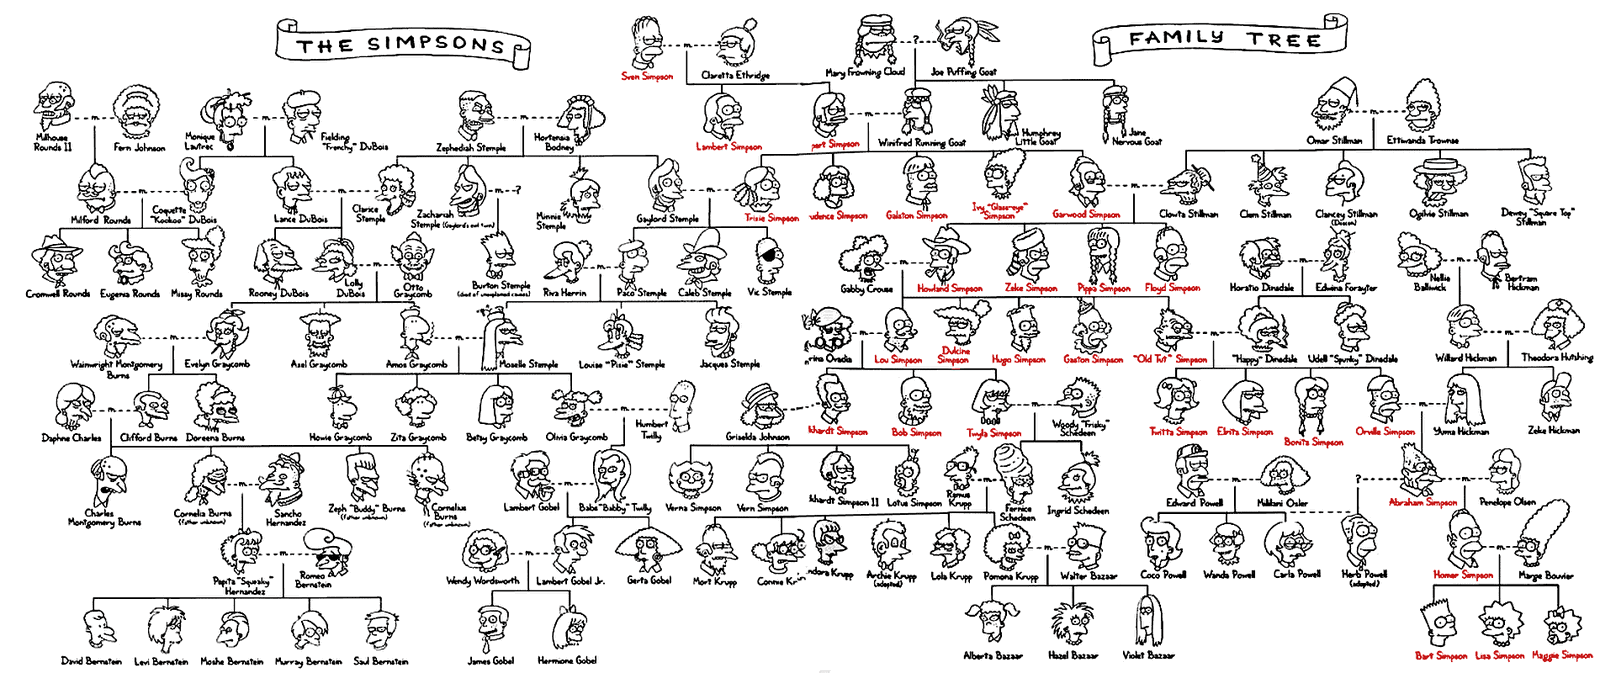 THE SIMPSONS
FAMILY TREE
Sven Simpson
Claretta Ethridge
Mary Frowning Cloud
?
Joe Puffing Goat
Milhouse
Rounds II
Fern Johnson
Monique
Lautrec
Fielding
"Frenchy" DuBois
Zephediah Stemple
Hortensia
Bodney
Lambert Simpson
Winifred Running Goat
Humphrey
Little Goat
Jane
Nervous Goat
Omar Stillman
Ettwanda Trownse
Milford Rounds
Coquette
"Kookoo" DuBois
Lance DuBois
Clarice
Stemple
Zachariah
Stemple (Gaylord's evil twin)
?
Minnie
Stemple
Gaylord Stemple
Trixie Simpson
Simpson
Galston Simpson
Ivy "Glass-eye"
Simpson
Garwood Simpson
Clowta Stillman
Clem Stillman
Clancey Stillman
Ogilvie Stillman
Dewey "Square Top"
Stillman
Cromwell Rounds
Eugenia Rounds
Missy Rounds
Rooney DuBois
Lolly
DuBois
Otto
Graycomb
Burton Stemple
(died of unexplained causes)
Riva Herrin
Paco Stemple
Caleb Stemple
Vic Stemple
Gabby Crouse
Howland Simpson
Zeke Simpson
Pippa Simpson
Floyd Simpson
Horatio Dinsdale
Edwina Forayter
Nellie
Balliwick
Bertram
Hickman
Wainwright Montgomery
Burns
Evelyn Graycomb
Axel Graycomb
Amos Graycomb
Moselle Stemple
Louise "Pixie" Stemple
Jacques Stemple
Lou Simpson
Dulcine
Simpson
Hugo Simpson
Gaston Simpson
"Old Tut" Simpson
"Happy" Dinsdale
Udell "Spunky" Dinsdale
Willard Hickman
Theodora Hutshing
Daphne Charles
Clifford Burns
Doreena Burns
Howie Graycomb
Zita Graycomb
Betsy Graycomb
Olivia Graycomb
Humbert
Twilly
Griselda Johnson
Simpson
Bob Simpson
Twyla Simpson
Woody "Frisky"
Schedeen
Twitta Simpson
Elrita Simpson
Bonita Simpson
Orville Simpson
Yuma Hickman
Zeke Hickman
Charles
Montgomery Burns
Cornelia Burns
(father unknown)
Sancho
Hernandez
Zeph "Buddy" Burns
(father unknown)
Cornelius
Burns
(father unknown)
Lambert Gobel
Babs "Babby" Twilly
Verna Simpson
Vern Simpson
Simpson II
Lotus Simpson
Ramus
Krupp
Fernice
Schedeen
Ingrid Schedeen
Edward Powell
Mililani Osler
?
Abraham Simpson
Penelope Olsen
Pepita "Squeaky"
Hernandez
Romeo
Bernstein
Wendy Wordsworth
Lambert Gobel Jr.
Gerta Gobel
Mort Krupp
Connie
Krupp
Archie Krupp
(adopted)
Lola Krupp
Pomona Krupp
Walter Bazaar
Coco Powell
Wanda Powell
Carla Powell
Herb Powell
(adopted)
Homer Simpson
Marge Bouvier
David Bernstein
Levi Bernstein
Moshe Bernstein
Murray Bernstein
Saul Bernstein
James Gobel
Hermione Gobel
Alberta Bazaar
Hazel Bazaar
Violet Bazaar
Bart Simpson
Lisa Simpson
Maggie Simpson